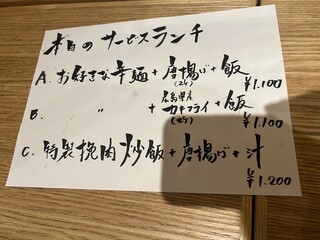 本日のサービスランチ
A. お好きな辛麺+唐揚げ+飯
(2ケ)
¥1.100
B. 〃 + 広島県産カキフライ+飯
(2ケ)
¥1.100
C. 特製挽肉炒飯+唐揚げ+汁
¥1.200